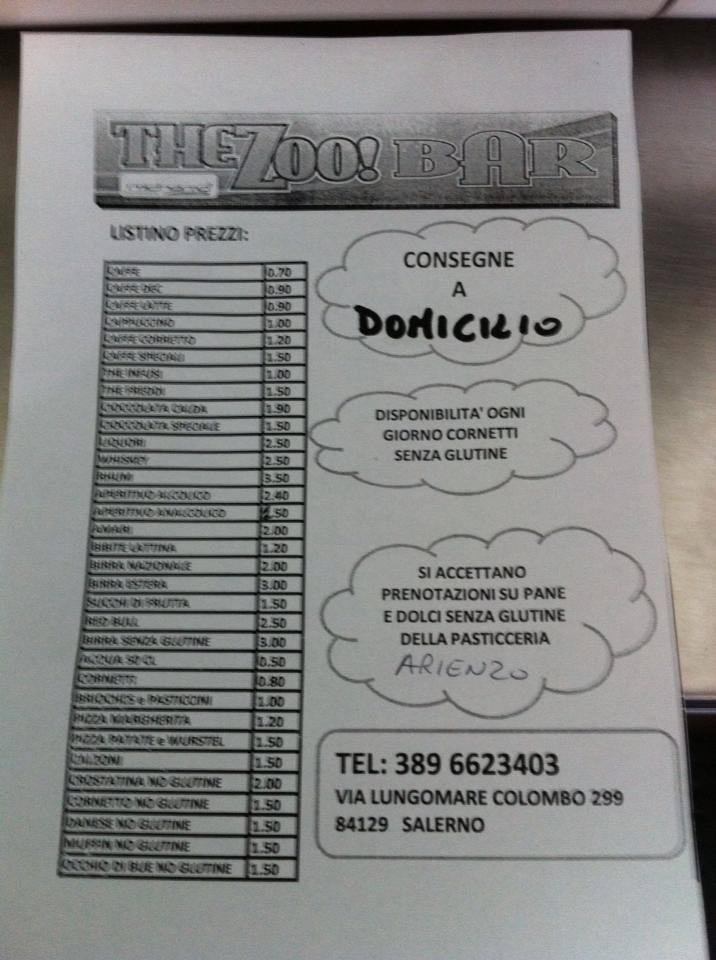 THE ZOO! BAR
LISTINO PREZZI:
CAFFE 0.70
CAFFE DEC 0.90
CAFFE LATTE 0.90
CAPPUCCINO 1.00
CAFFE CORRETTO 1.20
CAFFE SPECIALI 1.50
THE INFUSI 1.00
THE FREDDI 1.50
CIOCCOLATA CALDA 1.90
CIOCCOLATA SPECIALE 1.50
LIQUORI 2.50
WHISKEY 2.50
RHUM 3.50
APERITIVO ALCOLICO 2.40
APERITIVO ANALCOLICO .50
AMARI 2.00
BIBITE LATTINA 1.20
BIRRA NAZIONALE 2.00
BIRRA ESTERA 3.00
SUCCHI DI FRUTTA 1.50
RED BULL 2.50
BIRRA SENZA GLUTINE 3.00
ACQUA 50 CL 0.50
CORNETTI 0.80
BRIOCHES e PASTICCINI 1.00
PIZZA MARGHERITA 1.20
PIZZA PATATE e WURSTEL 1.50
CALZONI 1.50
CROSTATINA NO GLUTINE 2.00
CORNETTO NO GLUTINE 1.50
DANESE NO GLUTINE 1.50
MUFFIN NO GLUTINE 1.50
OCCHIO DI BUE NO GLUTINE 1.50
CONSEGNE
A
DOMICILIO
DISPONIBILITA' OGNI
GIORNO CORNETTI
SENZA GLUTINE
SI ACCETTANO
PRENOTAZIONI SU PANE
E DOLCI SENZA GLUTINE
DELLA PASTICCERIA
ARIENZO
TEL: 389 6623403
VIA LUNGOMARE COLOMBO 299
84129 SALERNO